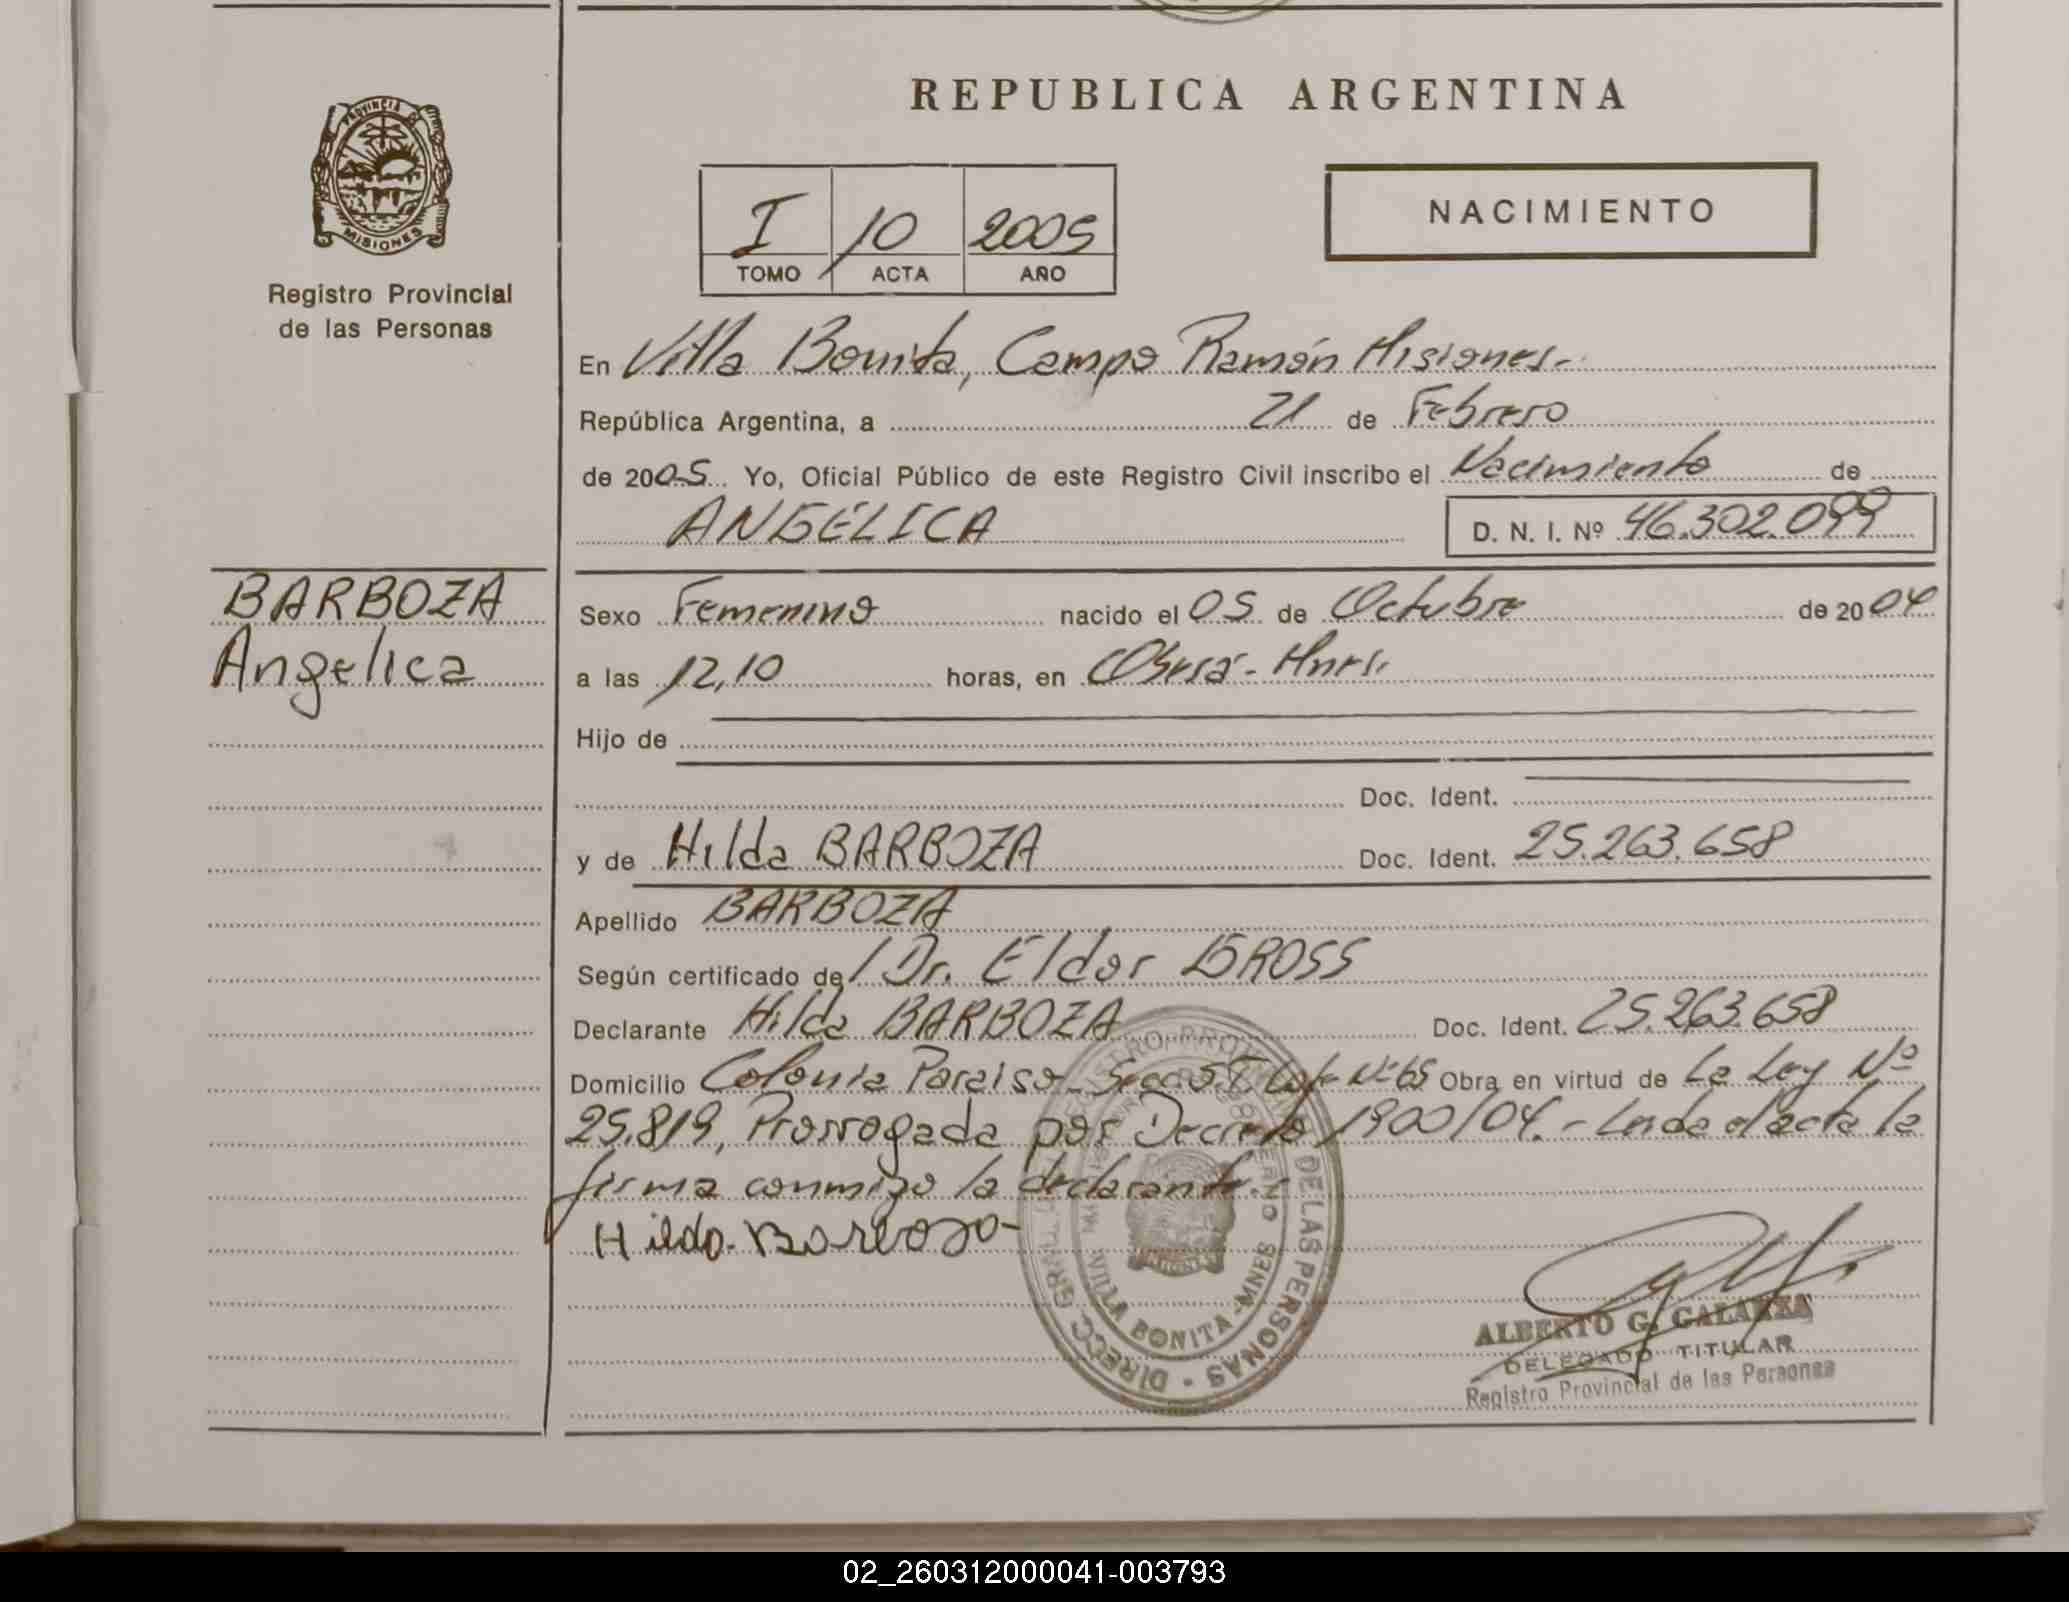 REPUBLICA ARGENTINA
PROVINCIA DE
MISIONES
Registro Provincial
de las Personas
I 10 2005
TOMO ACTA AÑO
NACIMIENTO
En Villa Bonita, Campo Ramón Misiones.-
República Argentina, a 21 de Febrero
de 2005 Yo, Oficial Público de este Registro Civil inscribo el Nacimiento de
ANGÉLICA D. N. I. Nº 46.302.099
BARBOZA
Angelica
Sexo Femenino nacido el 05 de Octubre de 2004
a las 12,10 horas, en Oberá-
Hijo de
Doc. Ident.
y de Hilda BARBOZA Doc. Ident. 25.263.658
Apellido BARBOZA
Según certificado de Dr. Eldor GROSS
Declarante Hilda BARBOZA Doc. Ident. 25.263.658
Domicilio Colonia Paraiso- Nº 65 Obra en virtud de La Ley Nº
25.819, Prorrogada por Decreto 1900/04.- Leída el acta la
firma conmigo la declarante.-
Hilda Barboza
DE LAS PERSONAS
VILLA BONITA - MNES
ALBERTO G. GALARZA
DELEGADO TITULAR
Registro Provincial de las Personas
02_260312000041-003793